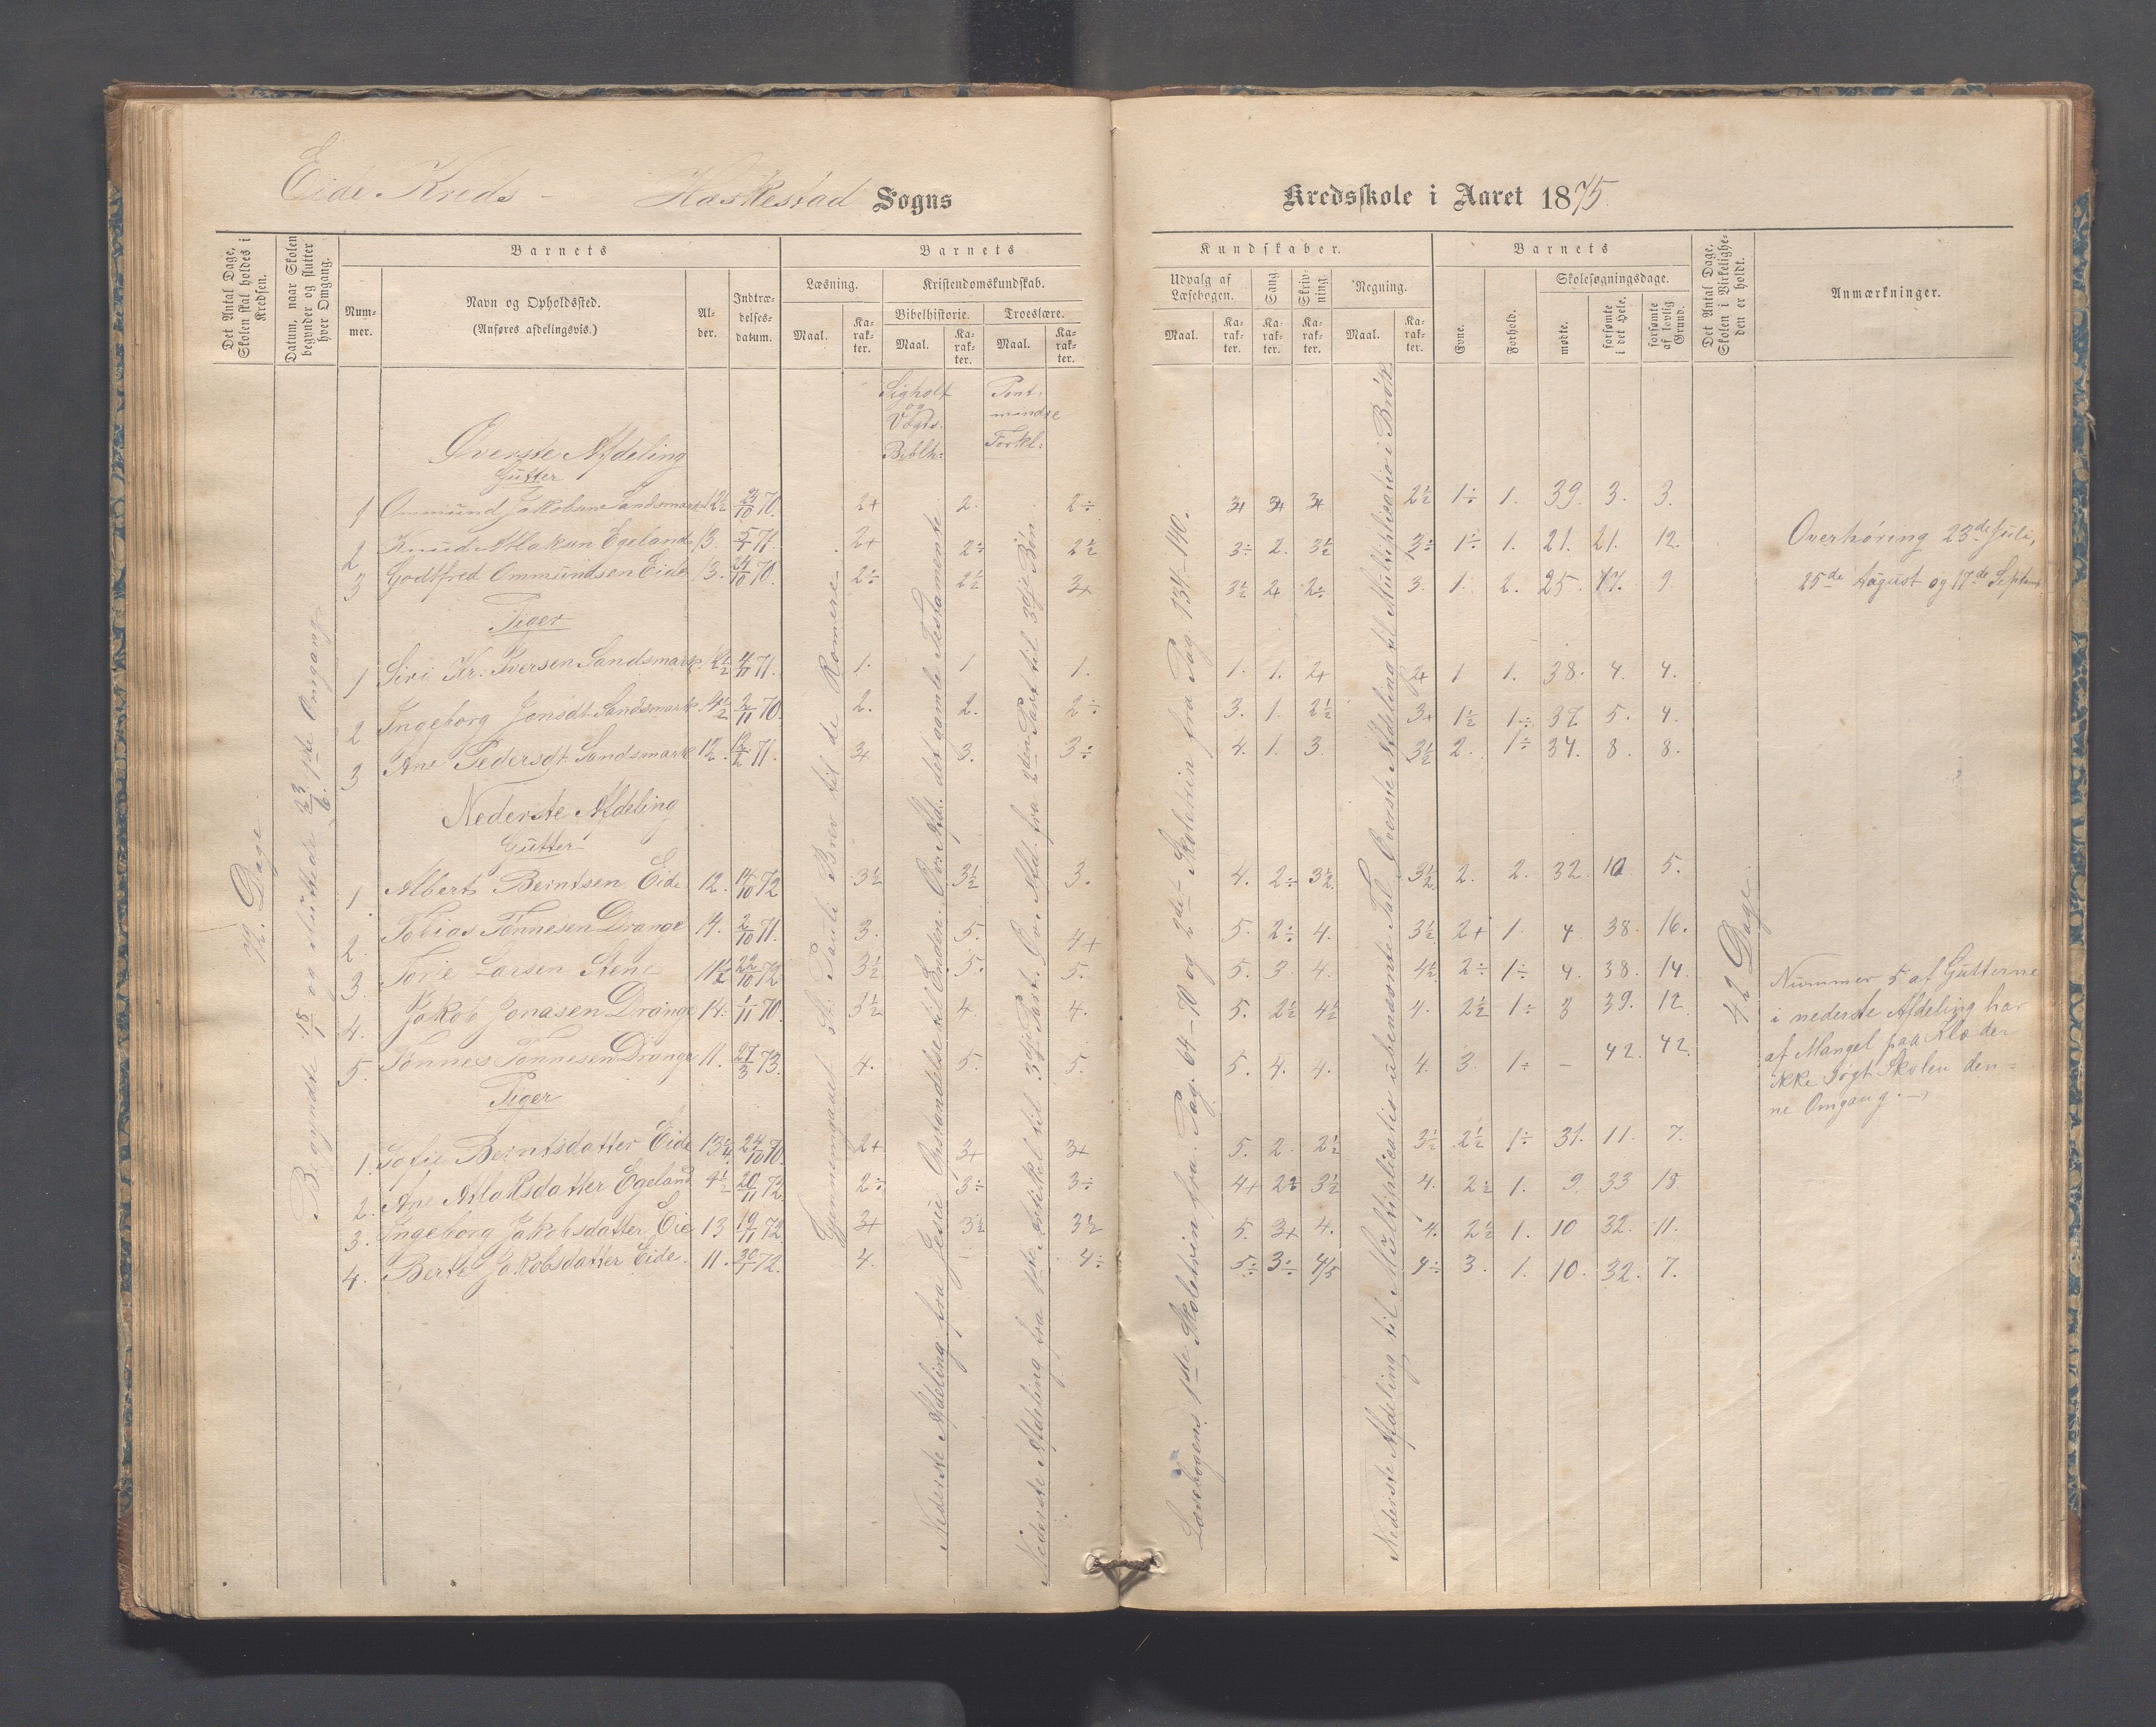 Eide Kreds - Haskestad Sogns
Kredsskole i Aaret 1875.
Det Antal Dage, Skolen skal holdes i Kredsen.
Datum, naar Skolen begynder og slutter hver Omgang.
Barnets
Nummer.
Navn og Opholdssted.
(Anføres afdelingsvis.)
Alder.
Indtrædelsesdatum.
Barnets
Læsning.
Maal.
Karakter.
Kristendomskundskab.
Bibelhistorie.
Maal.
Karakter.
Troeslære.
Maal.
Karakter.
Kundskaber.
Udvalg af Læsebogen.
Maal.
Karakter.
Sang
Karakter.
Skrivning.
Karakter.
Regning.
Maal.
Karakter.
Barnets
Evne.
Forhold.
Skolesøgningsdage.
mødte.
forsømte i det Hele.
forsømte af lovlig Grund.
Det Antal Dage, Skolen i Virkeligheden er holdt.
Anmærkninger.
Sigholt
og
Vogts
Biblh:
Pont:
mindre
Forkl:
72. Dage.
Begyndte 15/1 og sluttede 23/6. 1ste Omgang
Gjennemgaaet St. Pauli Brev til de Romere
Nederste Afdeling fra Jesu Opstandelse til Enden. Øv. Afd. det gamle Testamente
Nederste Afdeling fra 1ste Artikel til 3die Part. Øv. Afd. fra 2den Part til 3die Bøn.
Læsebogens 1ste Skoletrin fra Pag. 64-70 og 2det Skoletrin fra Pag 134-140.
Nederste Afdeling til Multiplicatio i ubenævnte Tal Øverste Afdeling til Multiplicatio i Brøk.
42 Dage.
Øverste Afdeling
Gutter
1 Ommund Jakobsen Sandsmark 12½ 24/10 70. 2+ 2. 2÷ 3+ 3+ 3+ 2½ 1÷ 1. 39. 3. 3.
2 Knud Aslaksen Egeland 13. 5/7 71. 2+ 2÷ 2½ 3÷ 2. 3½ 3÷ 1÷ 1. 21. 21. 12.
3 Godtfred Ommundsen Eide 13. 24/10 70. 2÷ 2½ 3+ 3½ 2+ 2÷ 3. 1. 2. 25. 17. 9.
Piger
1 Siri Kr. Iversen Sandsmark 12½ 4/11 71. 1. 1 1. 1. 1. 2+ 2+ 1 1. 38. 4. 4.
2 Ingeborg Jonsdt. Sandsmark 14½ 2/11 70. 2. 2. 2÷ 3. 1. 2½ 3+ 1½ 1÷ 37. 5. 4.
3 Ane Pedersdt. Sandsmark 12. 12/2 71. 3+ 3. 3÷ 4. 1. 3. 3½ 2. 1÷ 34. 8. 8.
Nederste Afdeling
Gutter
1. Albert Berntsen Eide 12. 14/10 72 3½ 3½ 3. 4. 2÷ 3½ 3½ 2. 2. 32. 10 5.
2. Tobias Tønnesen Drange 14. 2/10 71. 3. 5. 4+ 5. 2÷ 4. 3½ 2+ 1. 4 38. 16.
3. Torje Larsen Stene 11½ 22/10 72 3½ 5. 5. 5. 3. 4. 4½ 2÷ 1÷ 4. 38. 14.
4. Jakob Jonasen Drange 14. 1/11 70. 3½ 4. 4. 5. 2½ 4½ 4. 2½ 1÷ 3 39. 12.
5. Tønnes Tønnesen Drange 11. 27/3 73. 4. 5. 5. 5. 4. 4. 4. 3. 1÷ – 42. 42.
Piger
1. Sofie Berntsdatter Eide 13¾ 24/10 70. 2+ 3+ 3+ 5. 2. 2½ 3½ 2½ 1÷ 31. 11. 7.
2. Ane Aslaksdatter Egeland 9½ 20/11 72. 2÷ 3÷ 3÷ 4+ 2½ 3½ 4. 2½ 1. 9. 33 15.
3. Ingeborg Jakobsdatter Eie 13 19/11 72. 3+ 3½ 3½ 5. 3+ 4. 4. 2½ 1. 10 32. 11.
4. Berte Jakobsdatter Eide. 11. 30/1 72. 4. – 4÷ 5÷ 3÷ 4/5 4÷ 3. 1. 10. 32. 7.
Overhøring 23de Juli,
25de August og 17de Septemb.
Nummer 5 af Gutterne
i nederste Afdeling har
af Mangel paa Klæder
ikke søgt Skolen den=
ne Omgang. –